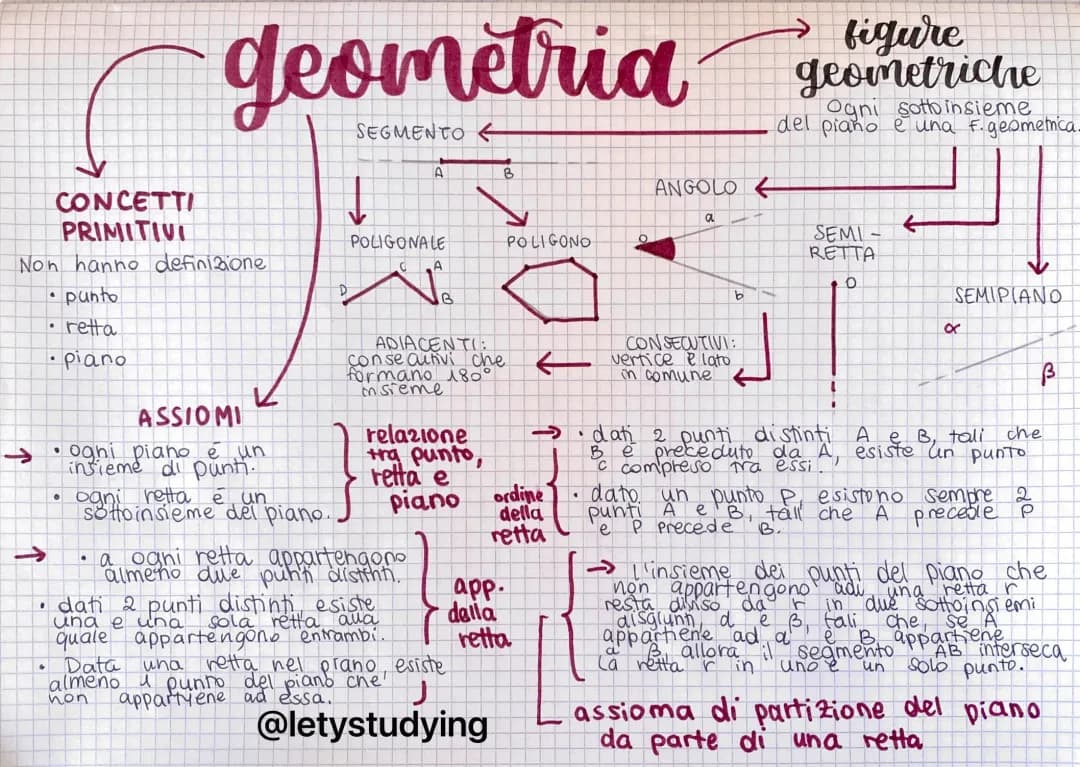 geometria
figure
geometriche
Ogni sottoinsieme
del piano è una F. geometrica.
SEGMENTO
A B
ANGOLO
CONCETTI
PRIMITIVI
Non hanno definizione
• punto
• retta
• piano
POLIGONALE
D C A B
POLIGONO
a
o
b
SEMI-
RETTA
O
SEMIPIANO
α
β
ADIACENTI:
consecutivi che
formano 180°
insieme
CONSECUTIVI:
vertice e lato
in comune
ASSIOMI
• ogni piano é un
insieme di punti.
• ogni retta é un
sottoinsieme del piano.
relazione
tra punto,
retta e
piano
• a ogni retta appartengono
almeno due punti distinti.
• dati 2 punti distinti esiste
una e una sola retta alla
quale appartengono entrambi.
• Data una retta nel piano, esiste
almeno 1 punto del piano che
non appartyene ad essa.
app.
della
retta
• dati 2 punti distinti A e B, tali che
B è preceduto da A, esiste un punto
C compreso tra essi.
• dato un punto P, esistono sempre 2
punti A e B, tali che A precede P
e P precede B.
ordine
della
retta
L'insieme dei punti del piano che
non appartengono adu una retta r
resta diviso da r in due sottoinsiemi
disgiunti, α e β, tali che, se A
appartiene ad α e B appartiene
a β, allora il segmento AB interseca
la retta r in uno e un solo punto.
assioma di partizione del piano
da parte di una retta
@letystudying